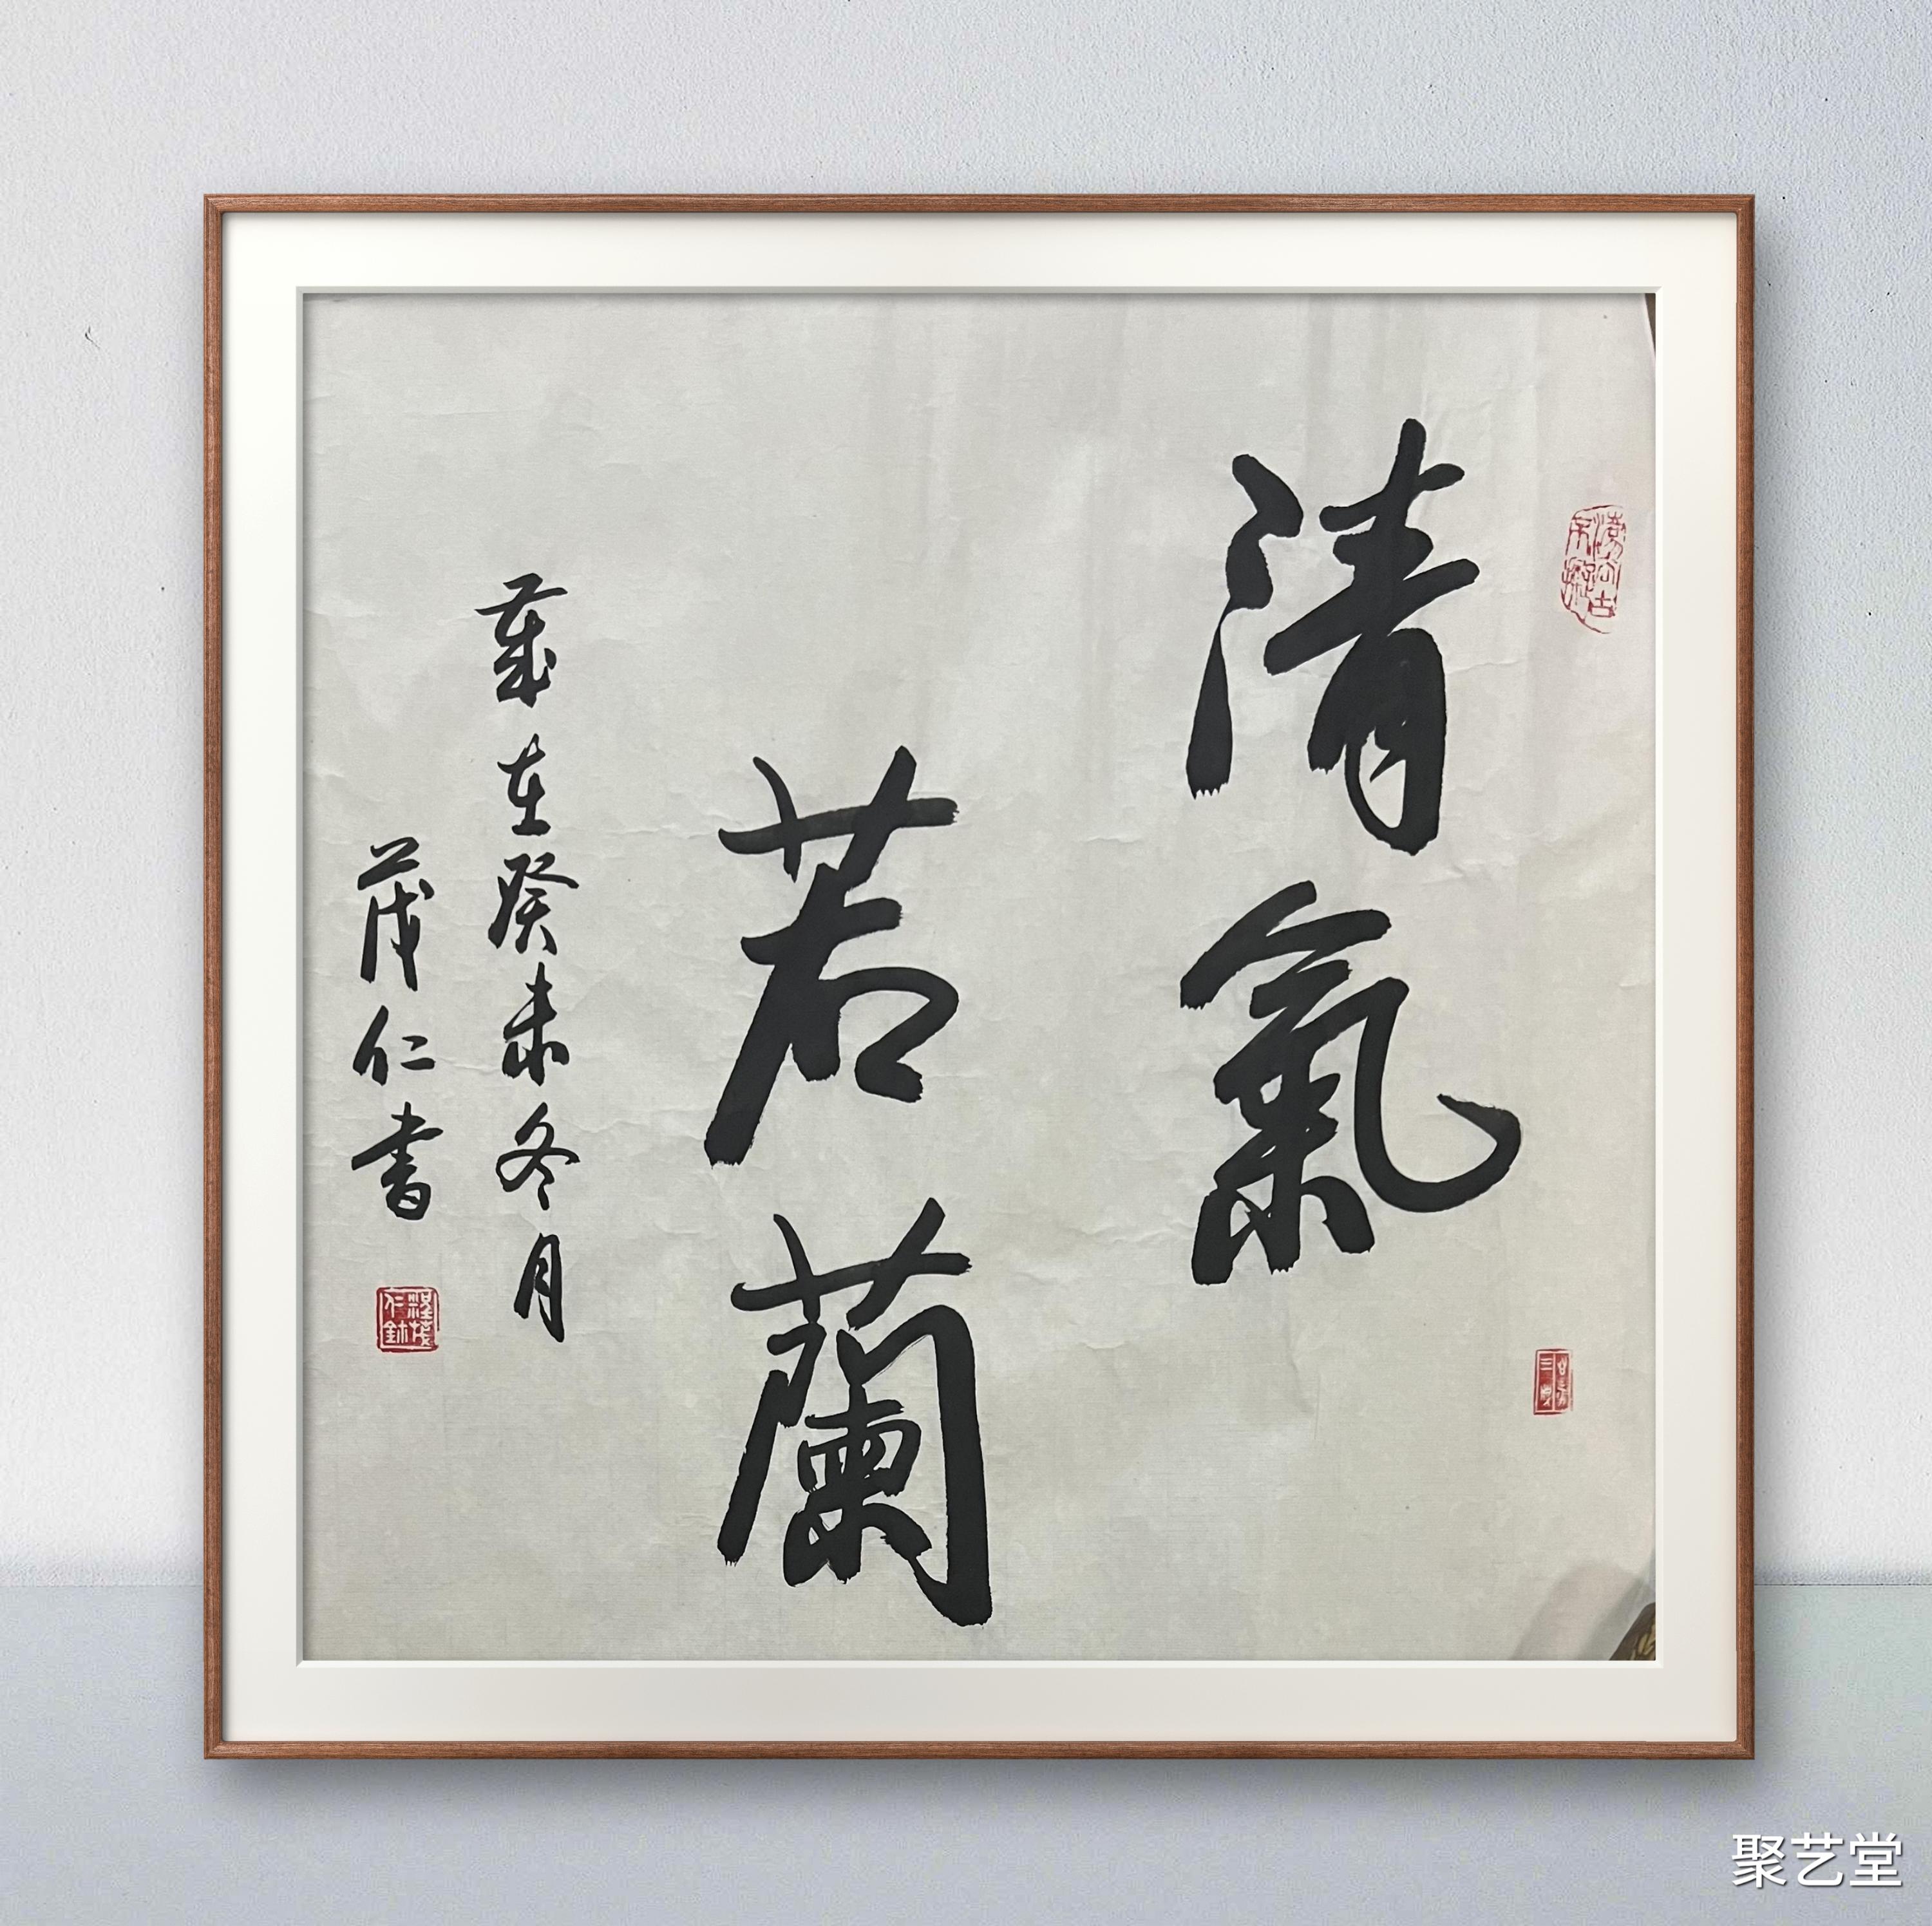 清氣
若蘭
歲在癸未冬月
茂仁書
聚艺堂